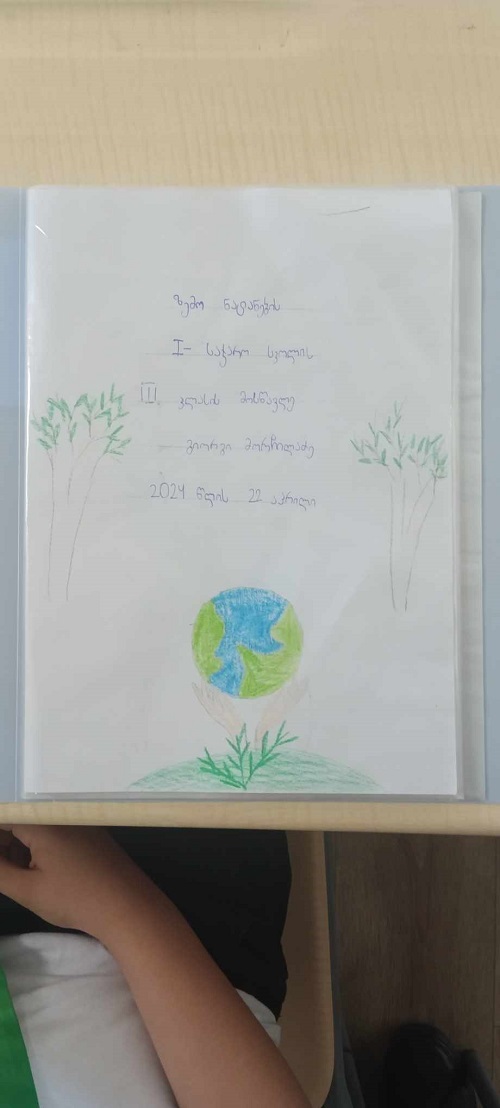 ზემო ნატანების
I- საჯარო სკოლის
III კლასის მოსწავლე
გიორგი მორჩილაძე
2024 წლის 22 აპრილი